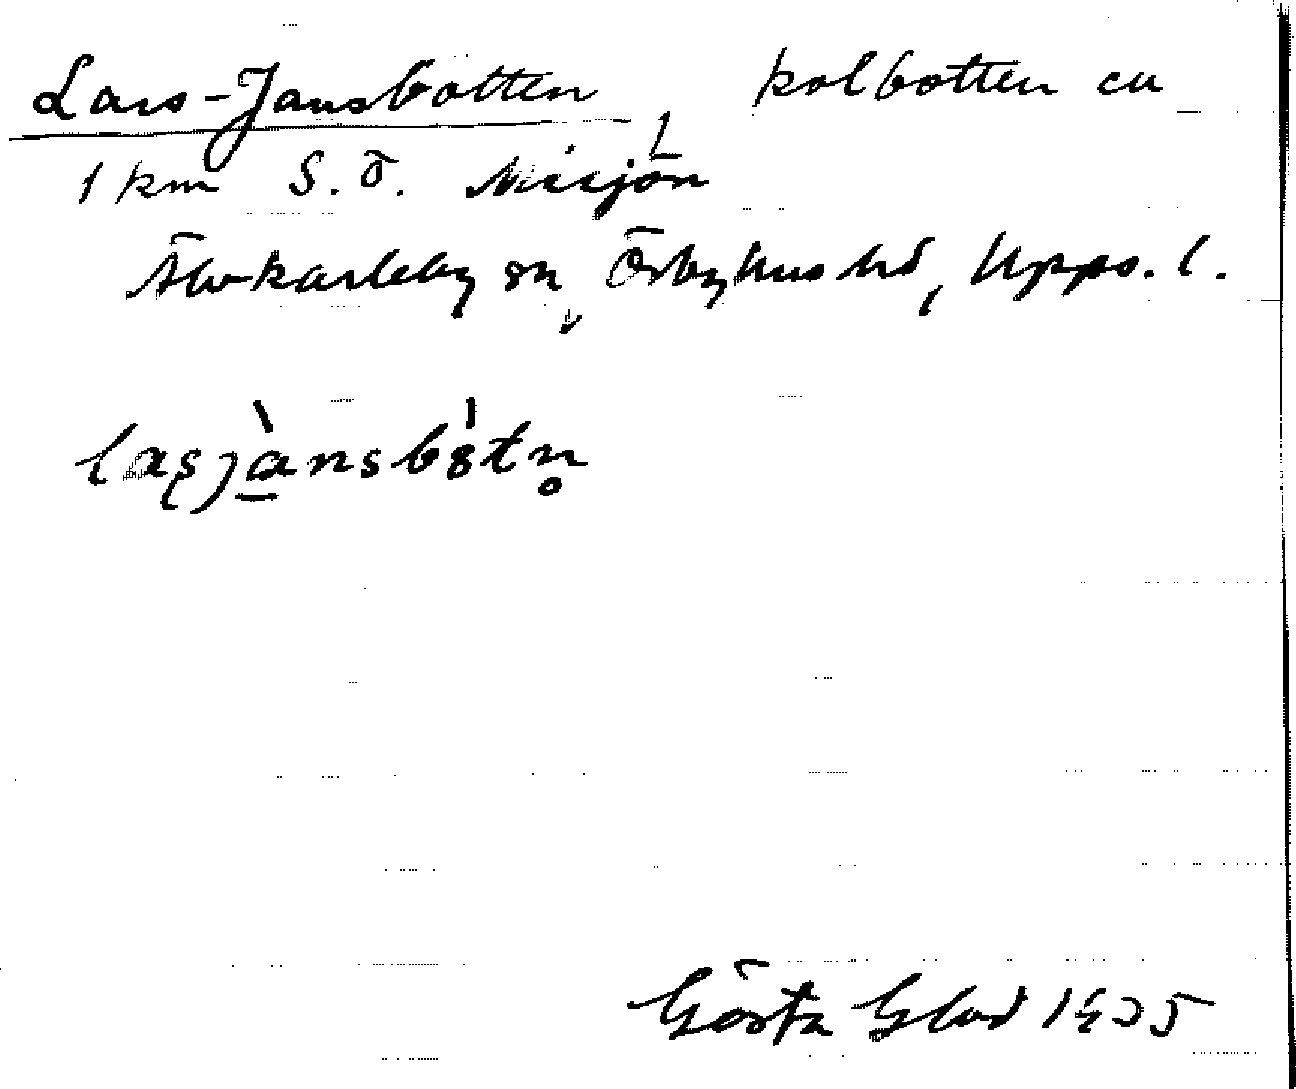 Lars-Jansbotten, kolbotten ca
1 km S.Ö. Nissjön
Älvkarleby sn, Örbyhus hd, Upps. l.
Gösta Glad 1935